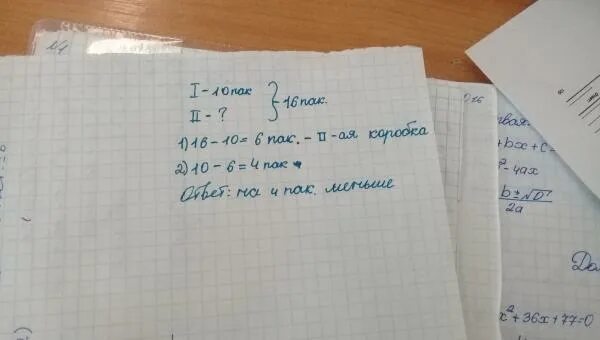 I - 10 пак
II - ?
} - 16 пак.
1) 16 - 10 = 6 пак. - II-ая коробка
2) 10 - 6 = 4 пак.
Ответ: на 4 пак. меньше
+ bx + c =
- 4ax
b ± √D
2a
x² + 36x + 77 = 0